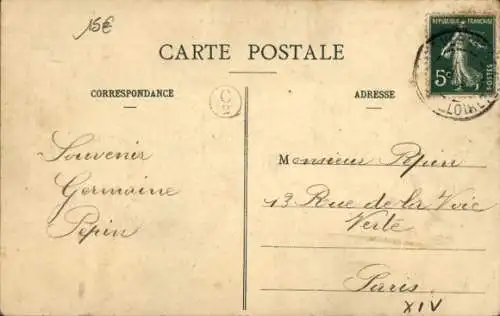 15€
CARTE POSTALE
CORRESPONDANCE
ADRESSE
C
2
REPUBLIQUE FRANÇAISE
5c
POSTES
LOIRE
Souvenir
Germaine
Pepin
Monsieur Pepin
13 Rue de la Voie
Verte
Paris
XIV